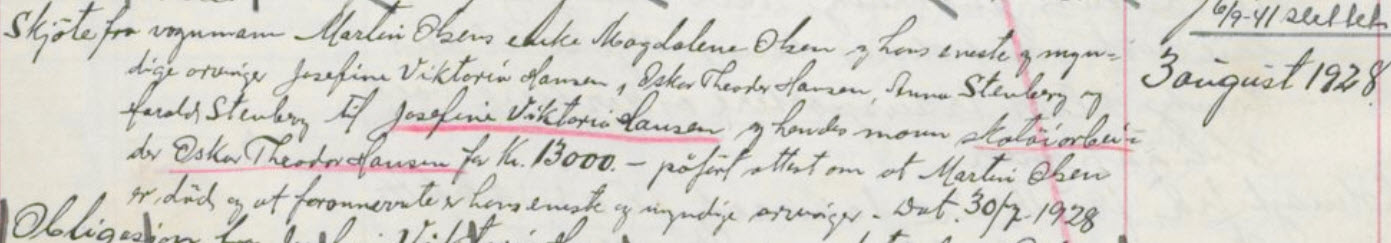 6/9-41 slettet
Skjöte fra vognmann Martin Olsens enke Magdalene Olsen og hans eneste og myn-
dige arvinger Josefine Viktoria Hansen, Oskar Theodor Hansen, Anna Stenberg og
Harald Stenberg til Josefine Viktoria Hansen og hendes mann skotöiarbei-
der Oskar Theodor Hansen for Kr. 13000.- påfört attest om at Martin Olsen
er död og at forannevnte er hans eneste og myndige arvinger - Dat. 30/7 1928
3 august 1928
Obligasjon fra